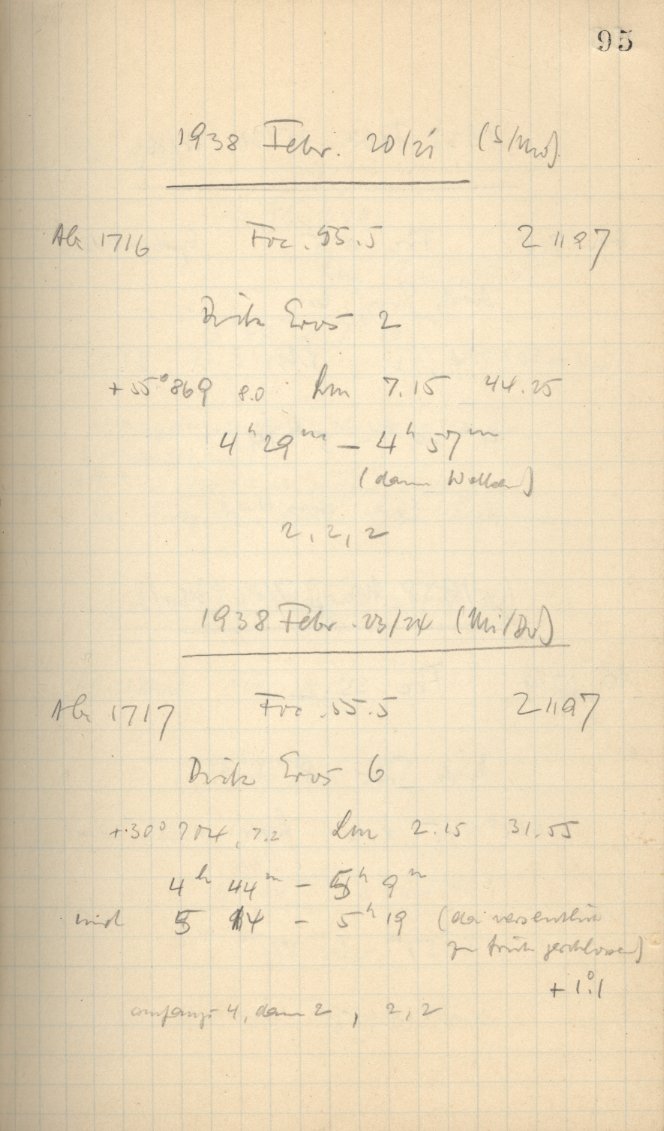 95
1938 Febr. 20/21 (S/Mo)
Ab 1716 Foc. 55.5 Z 1197
Eros 2
+55°869 8.0 Lm 7.15 44.25
4h 29m – 4h 57m
(dann Wolken)
2, 2, 2
1938 Febr. 23/24 (Mi/Do)
Ab 1717 Foc. 55.5 Z 1197
Eros 6
+30° 704, 7.2 Lm 2.15 31.55
4h 44m – 5h 9m
und 5 14 – 5h 19 (da versentlich
zu früh geschlossen)
+1°.1
anfangs 4, dann 2, 2, 2